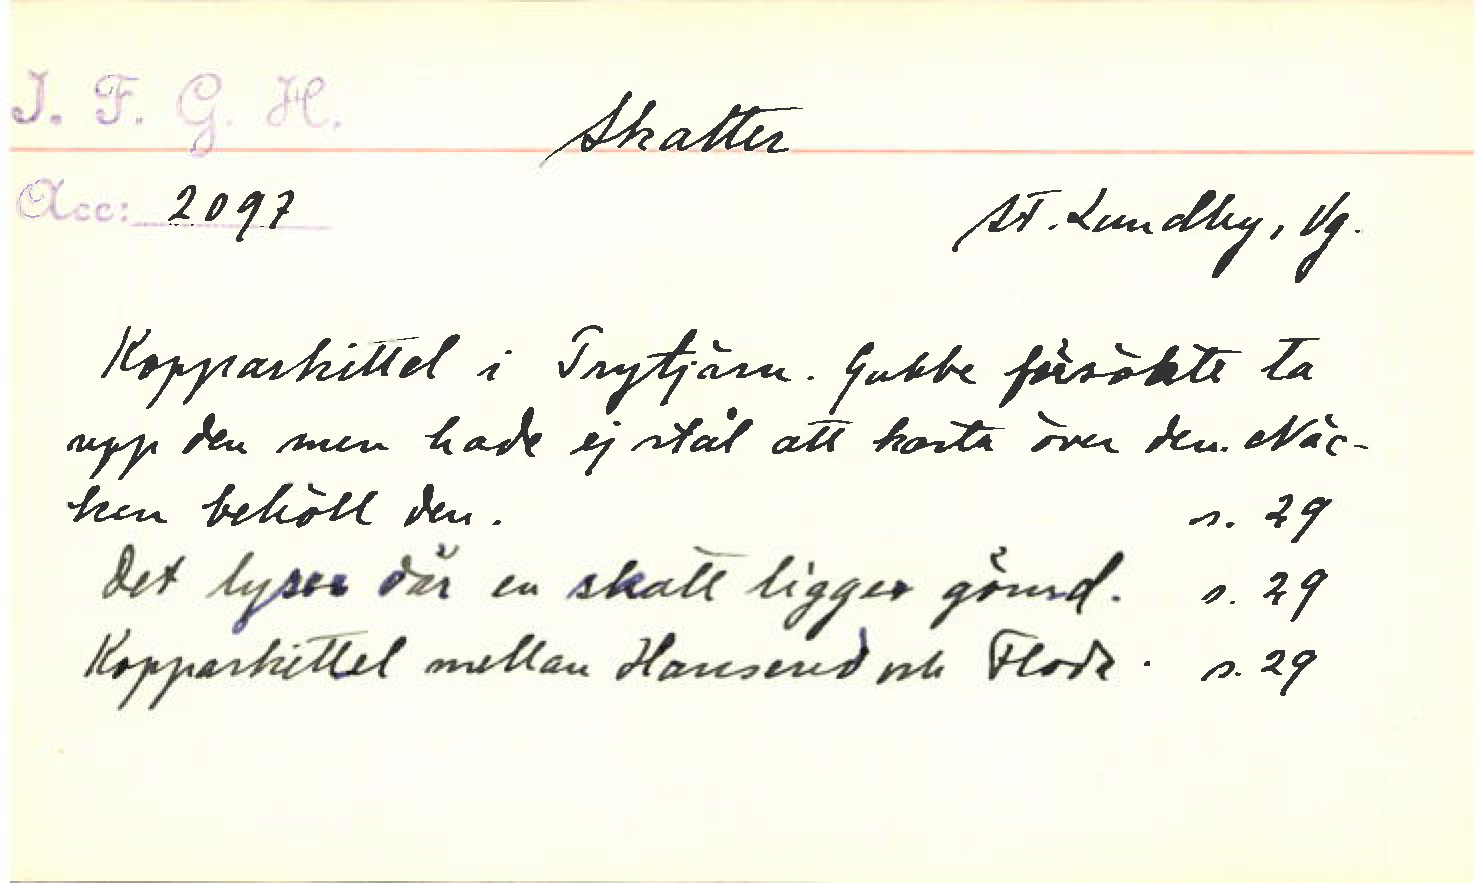 I. F. G. H.
Skatter
Acc: 2097
St. Lundby, Vg.
Kopparkittel i Trytjärn. Gubbe försökte ta
upp den men hade ej stål att kasta över den. Näc-
ken behöll den. s. 29
Det lyser där en skatt ligger gömd. s. 29
Kopparkittel mellan Hanserud och Floda. s. 29